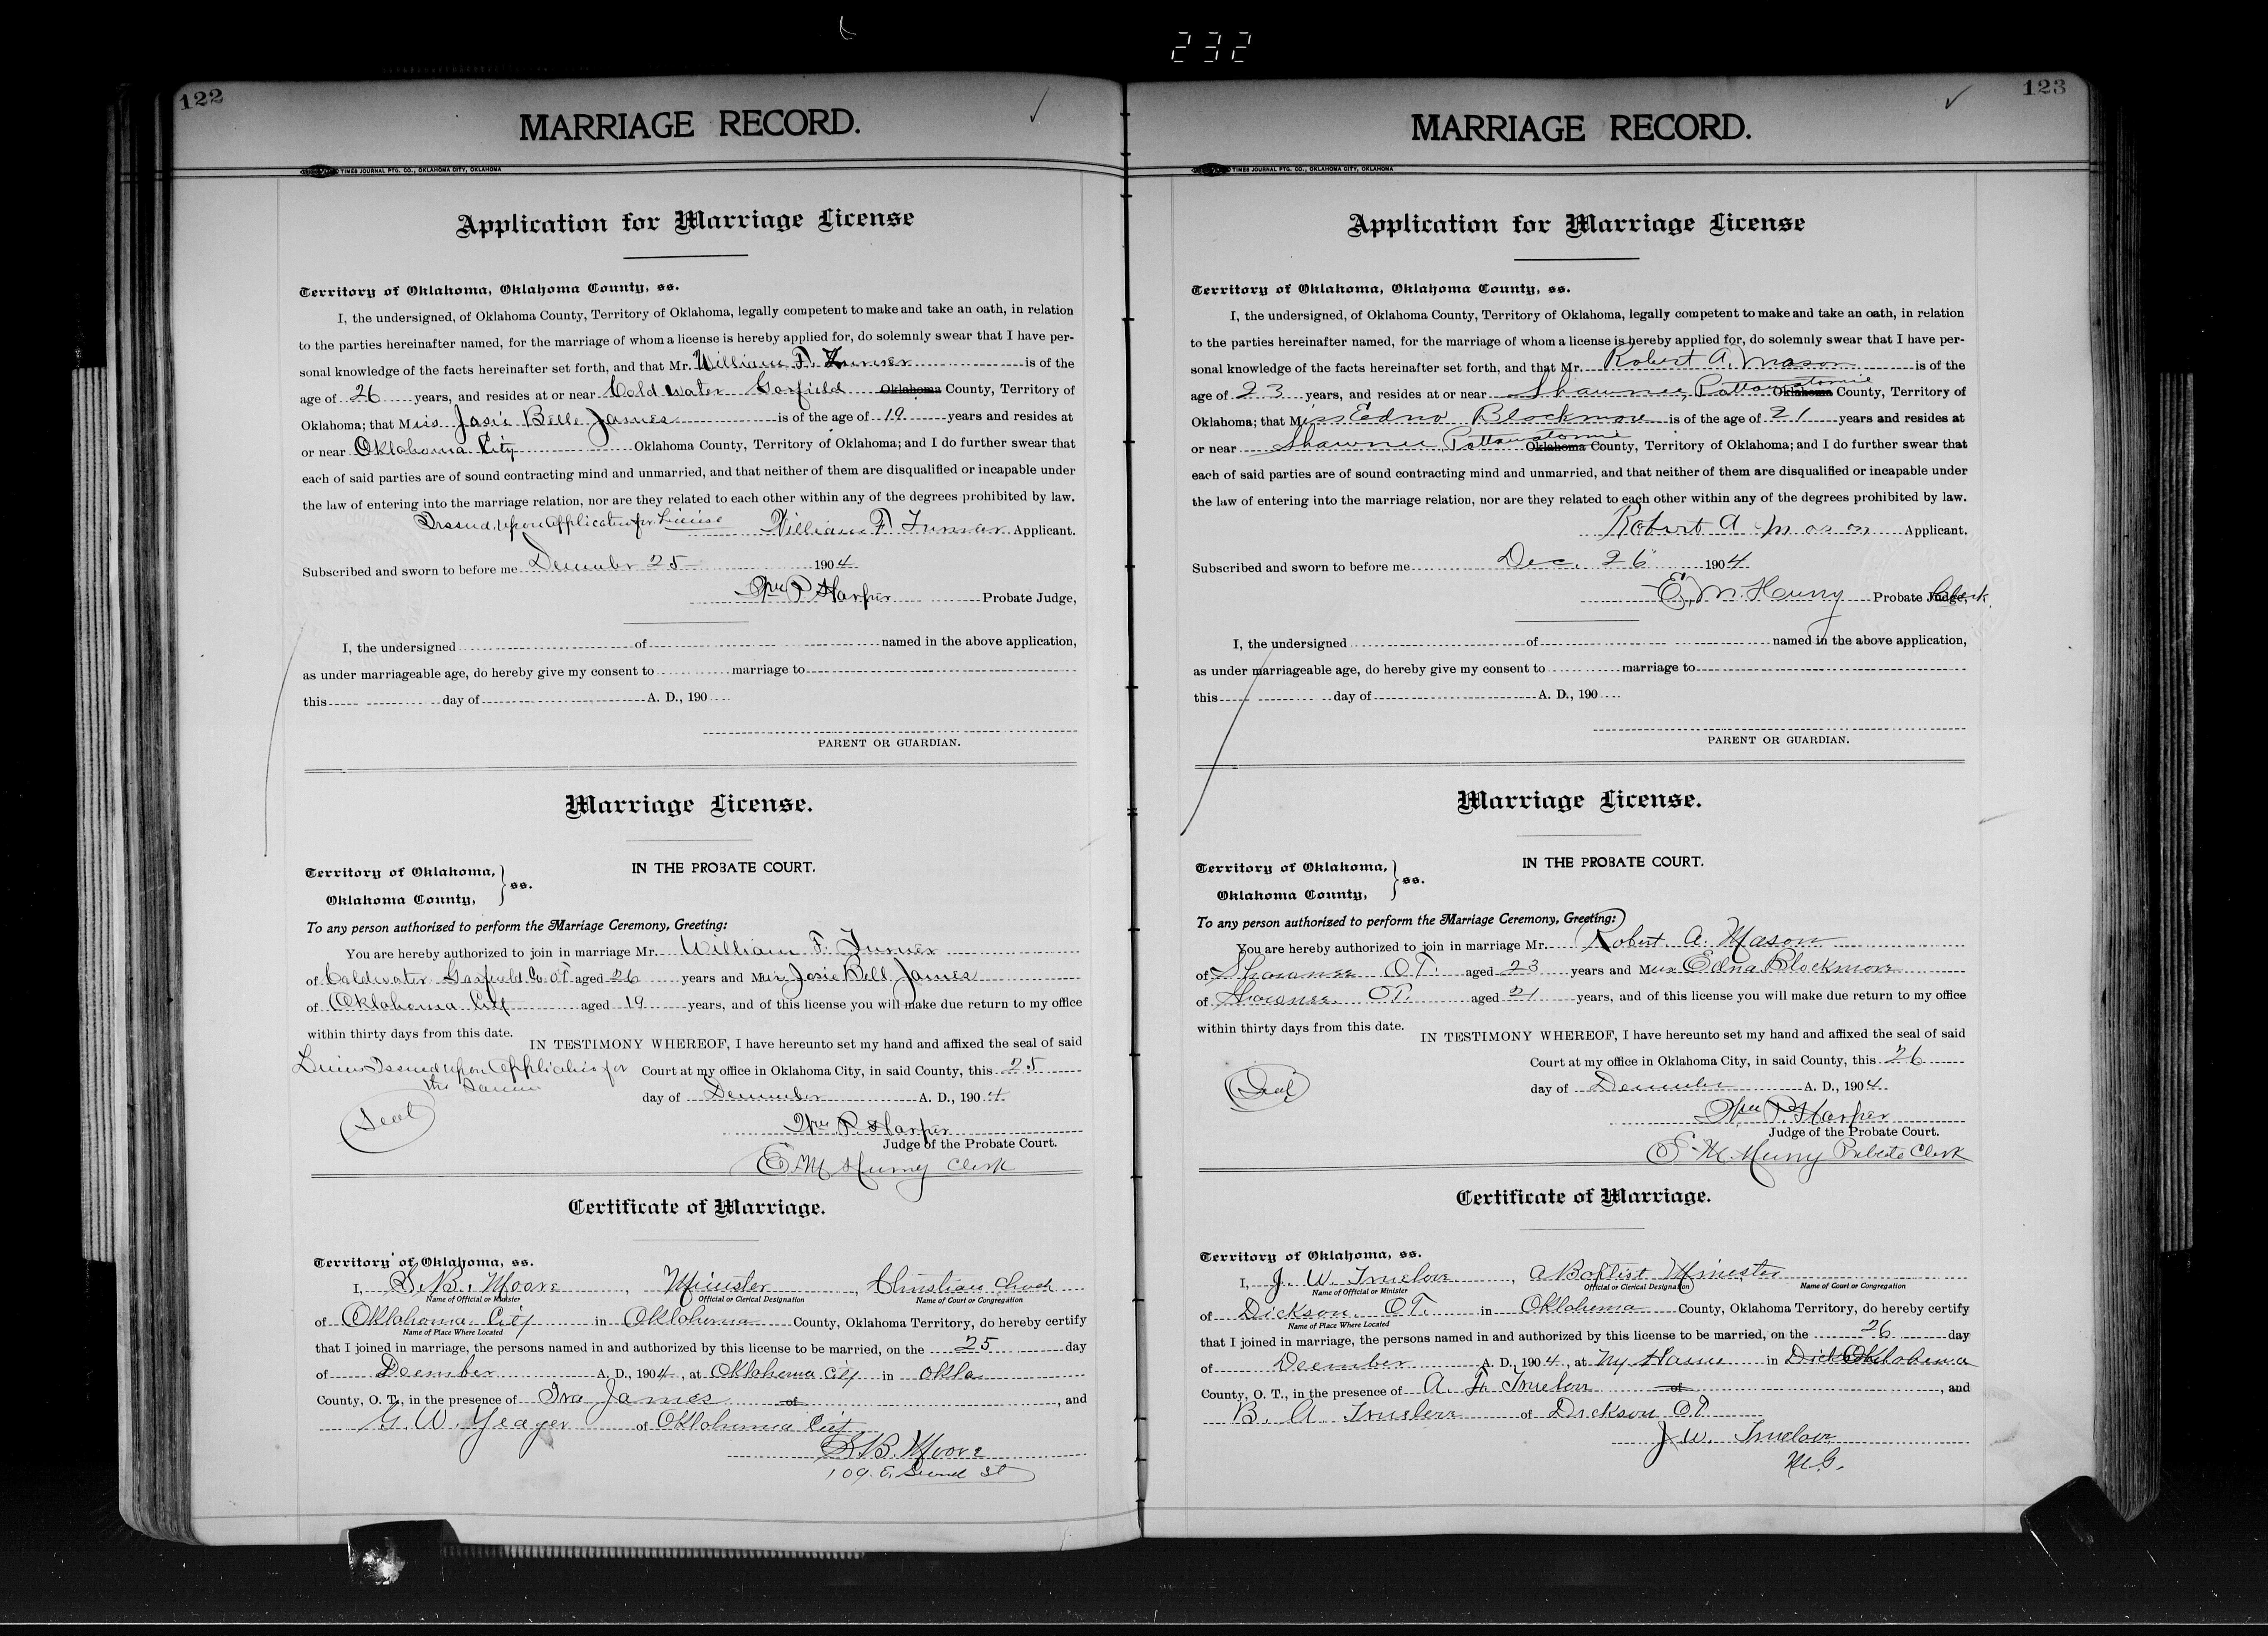 232
122
MARRIAGE RECORD.
TIMES JOURNAL PTG. CO., OKLAHOMA CITY, OKLAHOMA
Application for Marriage License
Territory of Oklahoma, Oklahoma County, ss.
I, the undersigned, of Oklahoma County, Territory of Oklahoma, legally competent to make and take an oath, in relation
to the parties hereinafter named, for the marriage of whom a license is hereby applied for, do solemnly swear that I have per-
sonal knowledge of the facts hereinafter set forth, and that Mr. William F. Turner is of the
age of 26 years, and resides at or near Coldwater Garfield Oklahoma County, Territory of
Oklahoma; that Miss Josie Bell James is of the age of 19 years and resides at
or near Oklahoma City Oklahoma County, Territory of Oklahoma; and I do further swear that
each of said parties are of sound contracting mind and unmarried, and that neither of them are disqualified or incapable under
the law of entering into the marriage relation, nor are they related to each other within any of the degrees prohibited by law.
Issued upon Application for License William F Turner Applicant.
Subscribed and sworn to before me December 25 1904
Wm P Harper Probate Judge,
I, the undersigned of named in the above application,
as under marriageable age, do hereby give my consent to marriage to
this day of A. D., 190
PARENT OR GUARDIAN.
Marriage License.
IN THE PROBATE COURT.
Territory of Oklahoma,
Oklahoma County, ss.
To any person authorized to perform the Marriage Ceremony, Greeting:
You are hereby authorized to join in marriage Mr. William F. Turner
of Coldwater Garfield Co. OT aged 26 years and Miss Josie Bell James
of Oklahoma City aged 19 years, and of this license you will make due return to my office
within thirty days from this date.
IN TESTIMONY WHEREOF, I have hereunto set my hand and affixed the seal of said
Issued upon Application for
the
Court at my office in Oklahoma City, in said County, this 25
day of December A. D., 1904
Seal
Wm P. Harper
Judge of the Probate Court.
E M Clerk
Certificate of Marriage.
Territory of Oklahoma, ss.
I, S. B. Moore, Minister, Christian Church
Name of Official or Minister Official or Clerical Designation Name of Court or Congregation
of Oklahoma City in Oklahoma County, Oklahoma Territory, do hereby certify
Name of Place Where Located
that I joined in marriage, the persons named in and authorized by this license to be married, on the 25 day
of December A. D., 1904, at Oklahoma City in Okla
County, O. T., in the presence of Ira James of , and
G. W. Yeager of Oklahoma City
S. B. Moore
109. E. Second St
123
MARRIAGE RECORD.
TIMES JOURNAL PTG. CO., OKLAHOMA CITY, OKLAHOMA
Application for Marriage License
Territory of Oklahoma, Oklahoma County, ss.
I, the undersigned, of Oklahoma County, Territory of Oklahoma, legally competent to make and take an oath, in relation
to the parties hereinafter named, for the marriage of whom a license is hereby applied for, do solemnly swear that I have per-
sonal knowledge of the facts hereinafter set forth, and that Mr. Robert A. Mason is of the
age of 23 years, and resides at or near Shawnee, Pottawatomie Oklahoma County, Territory of
Oklahoma; that Miss Edna Blackmore is of the age of 21 years and resides at
or near Shawnee Pottawatomie Oklahoma County, Territory of Oklahoma; and I do further swear that
each of said parties are of sound contracting mind and unmarried, and that neither of them are disqualified or incapable under
the law of entering into the marriage relation, nor are they related to each other within any of the degrees prohibited by law.
Robert A Mason Applicant.
Subscribed and sworn to before me Dec. 26 1904
E. M. Probate Judge, Clerk.
I, the undersigned of named in the above application,
as under marriageable age, do hereby give my consent to marriage to
this day of A. D., 190
PARENT OR GUARDIAN.
Marriage License.
IN THE PROBATE COURT.
Territory of Oklahoma,
Oklahoma County, ss.
To any person authorized to perform the Marriage Ceremony, Greeting:
You are hereby authorized to join in marriage Mr. Robert A. Mason
of Shawnee OT. aged 23 years and Miss Edna Blackmore
of Shawnee OT. aged 21 years, and of this license you will make due return to my office
within thirty days from this date.
IN TESTIMONY WHEREOF, I have hereunto set my hand and affixed the seal of said
Court at my office in Oklahoma City, in said County, this 26
Seal
day of December A. D., 1904
Wm P. Harper
Judge of the Probate Court.
E M Probate Clerk
Certificate of Marriage.
Territory of Oklahoma, ss.
I, J. W. Truelove, a Baptist Minister
Name of Official or Minister Official or Clerical Designation Name of Court or Congregation
of Dickson OT. in Oklahoma County, Oklahoma Territory, do hereby certify
Name of Place Where Located
that I joined in marriage, the persons named in and authorized by this license to be married, on the 26 day
of December A. D., 1904, at My Home in Oklahoma
County, O. T., in the presence of A. F. Truelove of , and
B. A. Truelove of Dickson OT
J. W. Truelove
M. G.